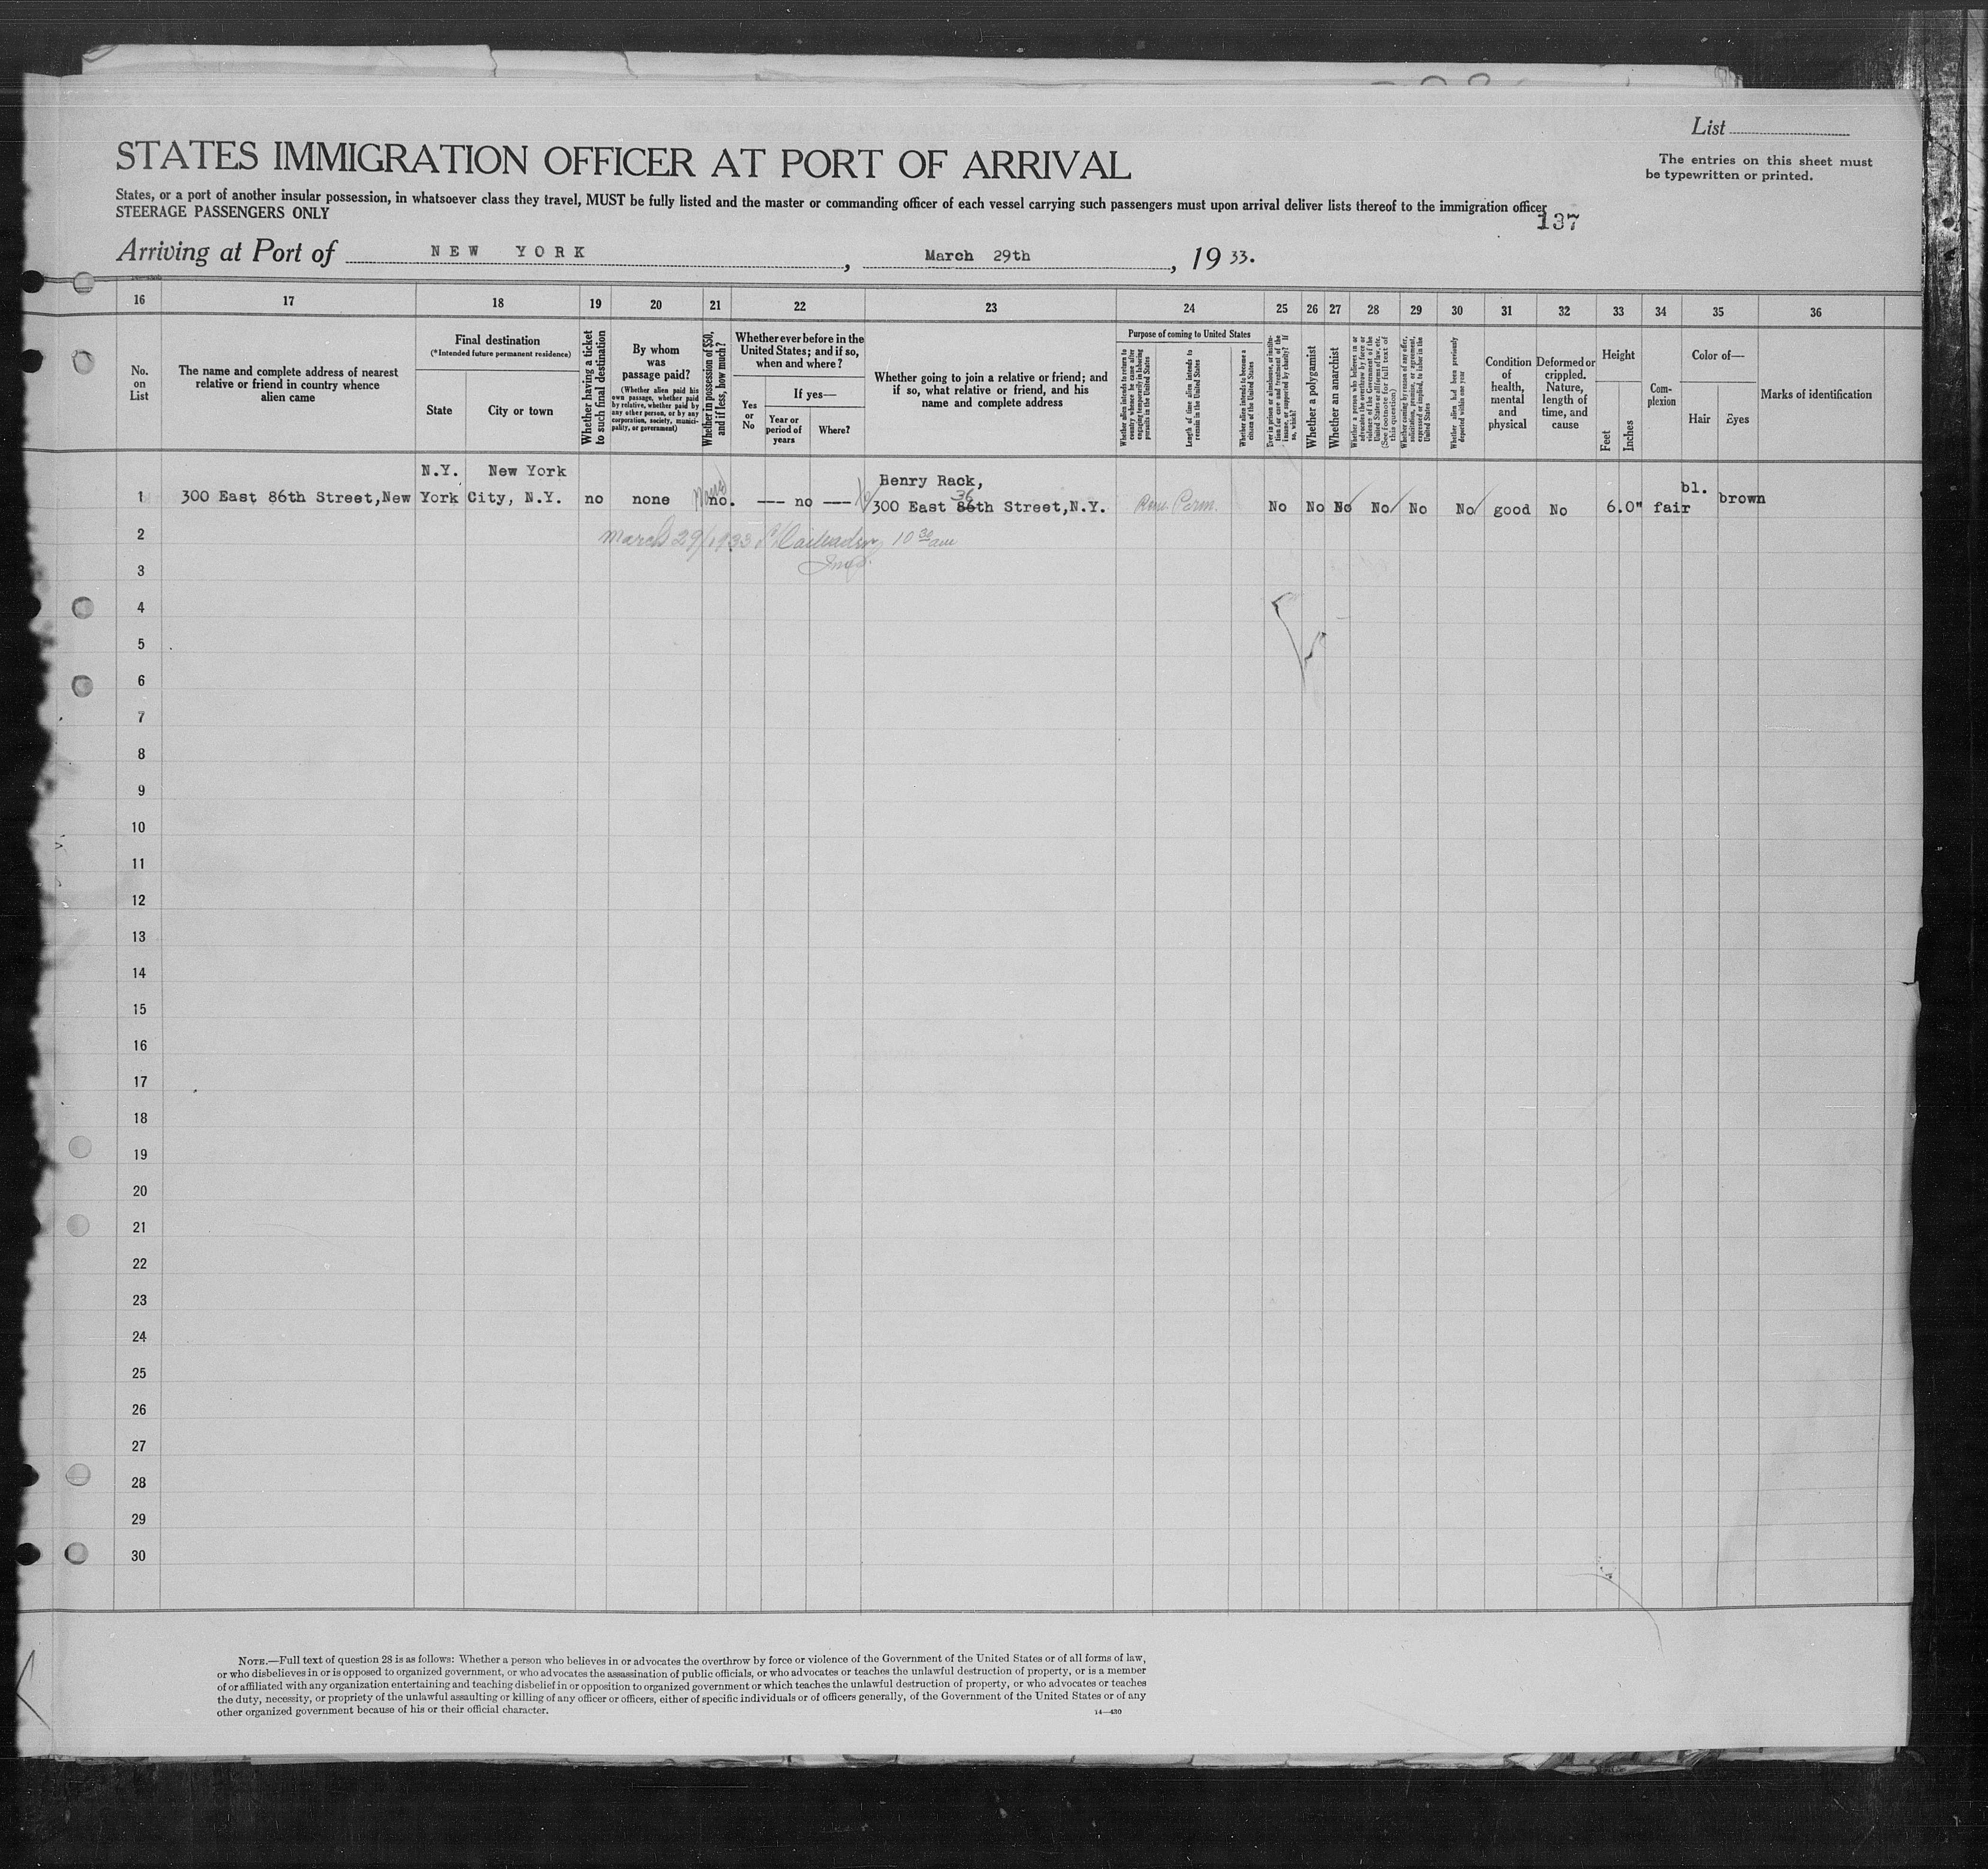 List
The entries on this sheet must
be typewritten or printed.
STATES IMMIGRATION OFFICER AT PORT OF ARRIVAL
States, or a port of another insular possession, in whatsoever class they travel, MUST be fully listed and the master or commanding officer of each vessel carrying such passengers must upon arrival deliver lists thereof to the immigration officer
STEERAGE PASSENGERS ONLY
137
Arriving at Port of NEW YORK, March 29th, 1933.
16 17 18 19 20 21 22 23 24 25 26 27 28 29 30 31 32 33 34 35 36
No.
on
List
The name and complete address of nearest
relative or friend in country whence
alien came
Final destination
(*Intended future permanent residence)
State
City or town
Whether having a ticket
to such final destination
By whom
was
passage paid?
(Whether alien paid his
own passage, whether paid
by relative, whether paid by
any other person, or by any
corporation, society, munici-
pality, or government)
Whether in possession of $50,
and if less, how much?
Whether ever before in the
United States; and if so,
when and where?
Yes
or
No
If yes—
Year or
period of
years
Where?
Whether going to join a relative or friend; and
if so, what relative or friend, and his
name and complete address
Purpose of coming to United States
Whether alien intends to return to
country whence he came after
engaging temporarily in laboring
pursuits in the United States
Length of time alien intends to
remain in the United States
Whether alien intends to become a
citizen of the United States
Ever in prison or almshouse, or institu-
tion for care and treatment of the
insane, or supported by charity? If
so, which?
Whether a polygamist
Whether an anarchist
Whether a person who believes in or
advocates the overthrow by force or
violence of the Government of the
United States or all forms of law, etc.
(See footnote for full text of
this question.)
Whether coming by reason of any offer,
solicitation, promise, or agreement,
expressed or implied, to labor in the
United States
Whether alien had been previously
deported within one year
Condition
of
health,
mental
and
physical
Deformed or
crippled.
Nature,
length of
time, and
cause
Height
Feet
Inches
Com-
plexion
Color of—
Hair
Eyes
Marks of identification
N.Y. New York
Henry Rack,
1 300 East 86th Street,New York City, N.Y. no none no. --- no --- 300 East 86th Street,N.Y. No No No No No No good No 6.0" fair bl. brown
36
None
Perm.
2
March 29/1933 10 30 am
Insp.
3
4
5
6
7
8
9
10
11
12
13
14
15
16
17
18
19
20
21
22
23
24
25
26
27
28
29
30
NOTE.—Full text of question 28 is as follows: Whether a person who believes in or advocates the overthrow by force or violence of the Government of the United States or of all forms of law,
or who disbelieves in or is opposed to organized government, or who advocates the assassination of public officials, or who advocates or teaches the unlawful destruction of property, or is a member
of or affiliated with any organization entertaining and teaching disbelief in or opposition to organized government or which teaches the unlawful destruction of property, or who advocates or teaches
the duty, necessity, or propriety of the unlawful assaulting or killing of any officer or officers, either of specific individuals or of officers generally, of the Government of the United States or of any
other organized government because of his or their official character.
14—430